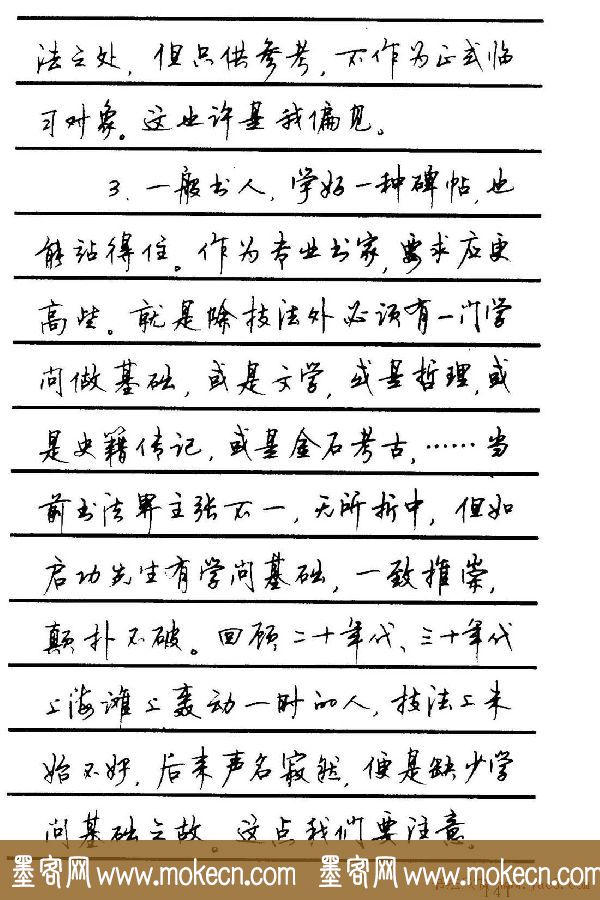 法之处，但只供参考，不作为正式临
习对象。这也许是我偏见。
3、一般书人，学好一种碑帖，也
能站得住。作为专业书家，要求应更
高些。就是除技法外必须有一门学
问做基础，或是文学，或是哲理，或
是史籍传记，或是金石考古，……当
前书法界主张不一，无所折中，但如
启功先生有学问基础，一致推崇，
颠扑不破。回顾二十年代、三十年代
上海滩上轰动一时的人，技法上未
始不好，后来声名寂然，便是缺少学
问基础之故。这点我们要注意。
墨客网 www.mokecn.com 墨客网 www.mokecn.com